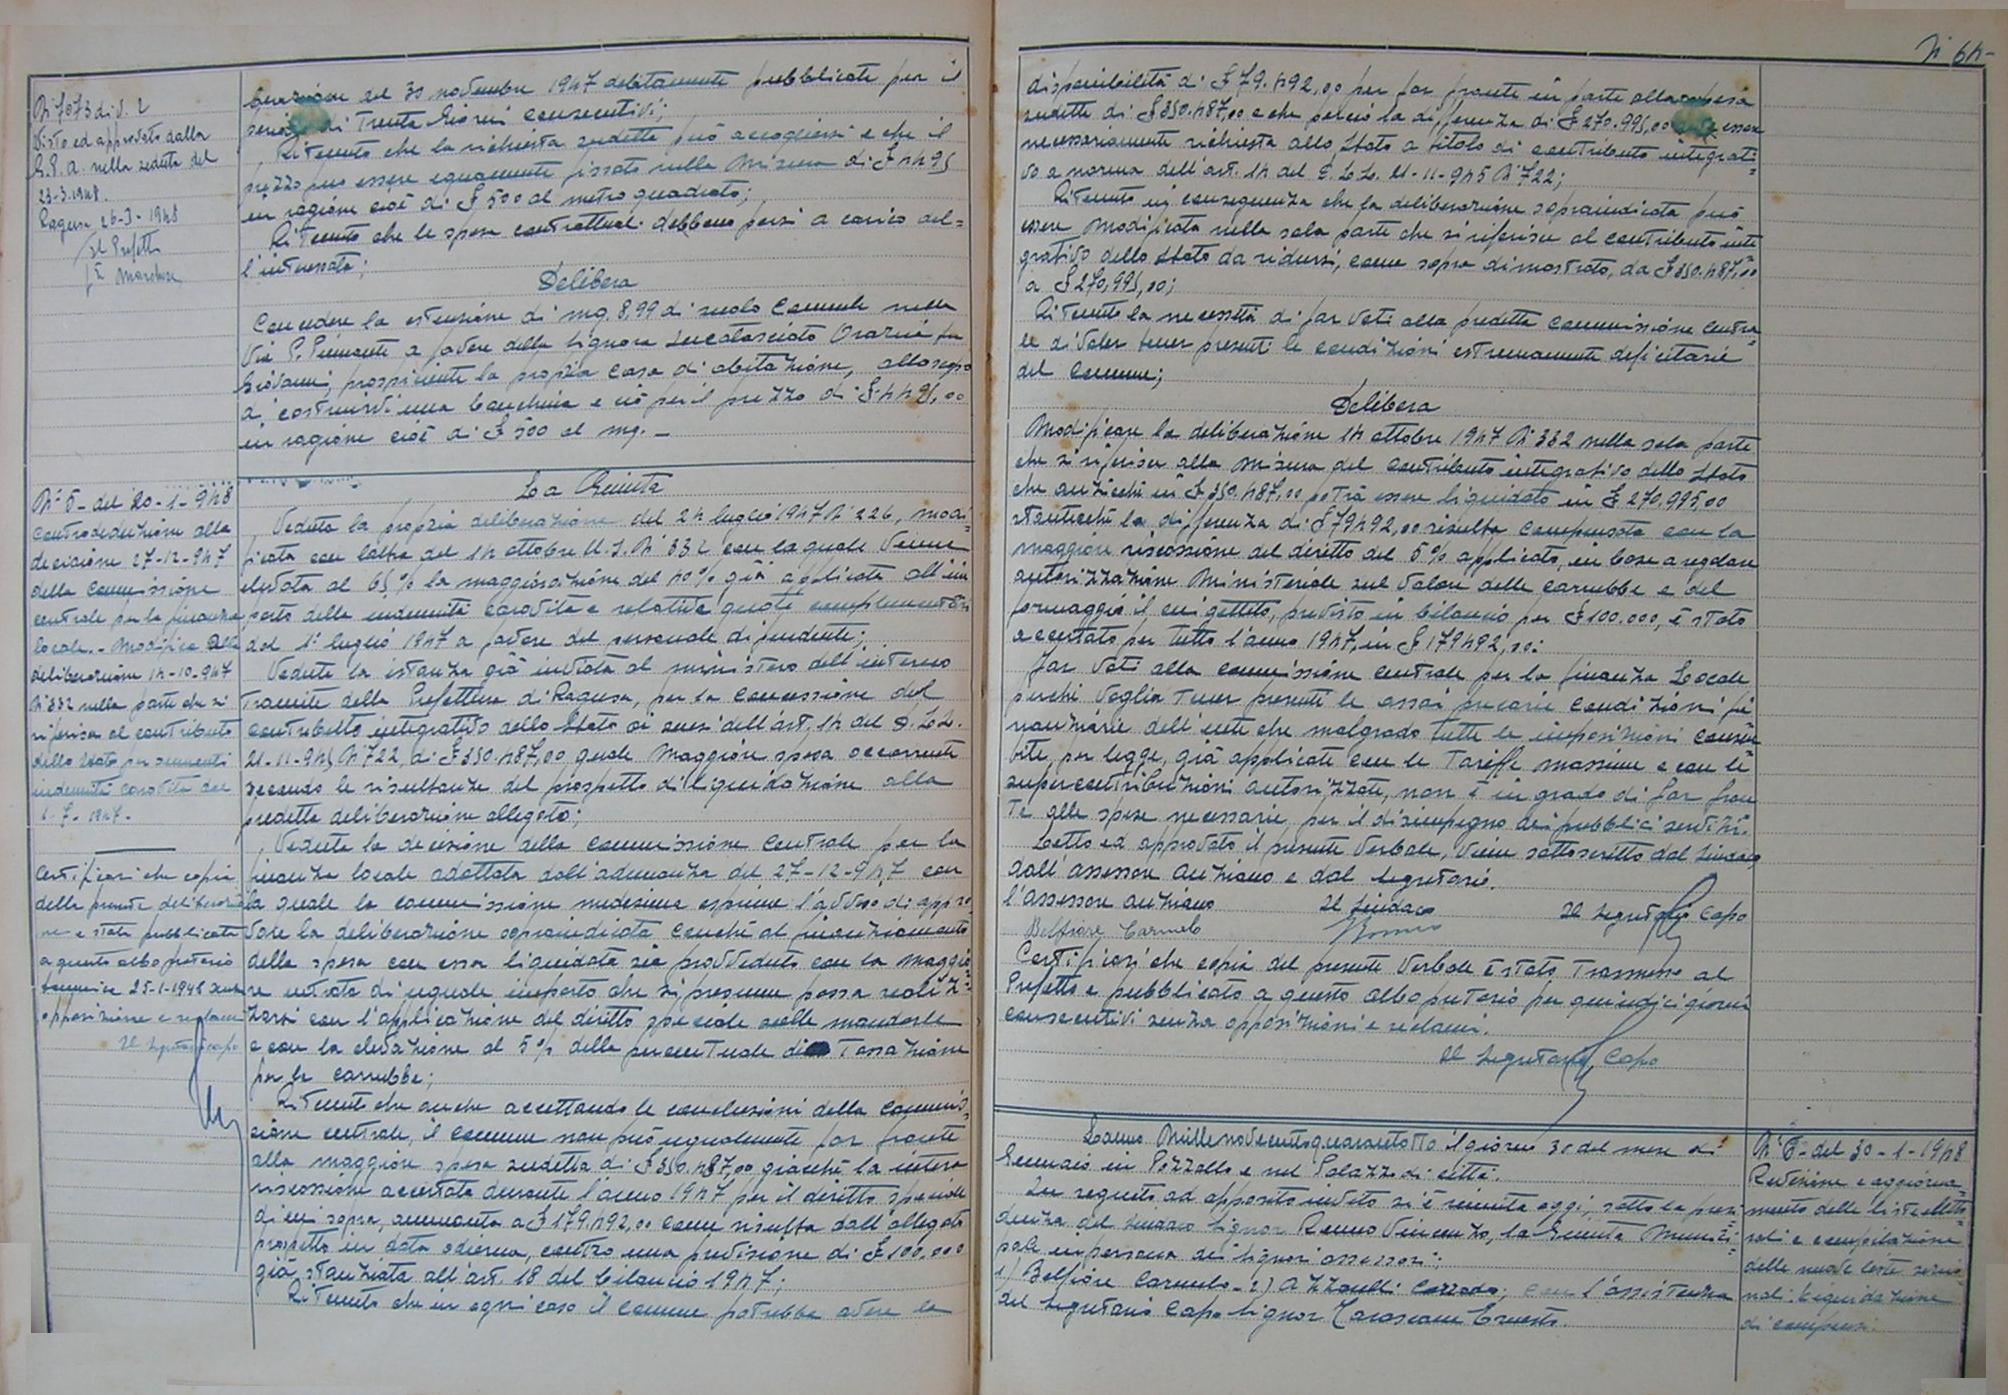 N° 7073 div. 2
Visto ed approvato dalla
G.P.A. nella seduta del
23-3-1948.
Ragusa 26-3-1948
Il Prefetto
f° Marchese
berazione del 30 novembre 1947 debitamente pubblicata per il
di trenta giorni consecutivi;
Ritenuto che la richiesta suddetta può accogliersi e che il
prezzo può essere equamente fissato nella misura di £ 4495
in ragione cioè di £ 500 al metro quadrato;
Ritenuto che le spese contrattuali debbono porsi a carico del=
l'interessata;
Delibera
Concedere la estensione di mq. 8,99 di suolo Comunale nella
Via P. Piemonte a favore della Signora Orazia fu
Giovanni, prospiciente la propria casa di abitazione, allo scopo
di costruirvi una banchina e ciò per il prezzo di £ 4495,00
in ragione cioè di £ 500 al mq. _
N° 5 - del 20-1-948
Controdeduzione alla
decisione 27-12-947
della Commissione
centrale per la finanza
locale. - Modifica alla
deliberazione 14-10-947
N° 332 nella parte che si
riferisce al contributo
dello Stato per aumenti
indennità carovita dal
1-7-1947.-
Certificasi che copia
della presente deliberazio
ne è stata pubblicata
a questo albo pretorio
domenica 25-1-1948 senza
opposizioni e reclami
Il Segretario capo
La Giunta
Veduta la propria deliberazione del 24 luglio 1947 N° 226, modi=
ficata con l'altra del 14 ottobre u.s. N° 332 con la quale venne
elevata al 65% la maggiorazione del 40% già applicata all'im
porto delle indennità carovita e relative quote complementari
dal 1° luglio 1947 a favore del personale dipendente;
Veduta la istanza già inviata al ministero dell'interno
tramite della Prefettura di Ragusa, per la concessione del
contributo integrativo dello Stato ai sensi dell'art. 14 del D.L.L.
21-11-945 N° 722, di £ 350.487,00 quale maggiore spesa occorrente
secondo le risultanze del prospetto di liquidazione alla
predetta deliberazione allegato;
Veduta la decisione della commissione centrale per la
finanza locale adottata dall'adunanza del 27-12-947 con
la quale la commissione medesima esprime l'avviso di appro=
vare la deliberazione sopraindicata conché al finanziamento
della spesa con essa liquidata sia provveduto con la maggio=
re entrata di uguale importo che si presume possa realiz=
zarsi con l'applicazione del diritto speciale sulle mandorle
e con la elevazione al 5% della percentuale di tassazione
per le carrubbe;
Ritenuto che anche accettando le conclusioni della Commis=
sione centrale, il comune non può ugualmente far fronte
alla maggiore spesa suddetta di £ 350.487,00 giacché la intera
riscossione accertata durante l'anno 1947 per il diritto speciale
di cui sopra, ammonta a £ 179.492,00 come risulta dall'allegato
prospetto in data odierna, contro una previsione di £ 100.000
già stanziata all'art. 18 del bilancio 1947;
Ritenuto che in ogni caso il comune potrebbe avere la
N° 64-
disponibilità di £ 79.492,00 per far fronte in parte alla spesa
suddetta di £ 350.487,00 e che perciò la differenza di £ 270.995,00 essere
necessariamente richiesta allo Stato a titolo di contributo integrati=
vo a norma dell'art. 14 del D.L.L. 21-11-945 N° 722;
Ritenuto in conseguenza che la deliberazione sopraindicata può
essere modificata nella sola parte che si riferisce al contributo inte=
grativo dello Stato da ridursi, come sopra dimostrato, da £ 350.487,00
a £ 270.995,00;
Ritenuta la necessità di far voti alla predetta commissione centra
le di voler tener presenti le condizioni estremamente deficitarie
del comune;
Delibera
Modificare la deliberazione 14 ottobre 1947 N° 332 nella sola parte
che si riferisce alla misura del contributo integrativo dello Stato
che anzicché in £ 350.487,00 potrà essere liquidato in £ 270.995,00
stanticché la differenza di £ 79492,00 risulta compensata con la
maggiore riscossione del diritto del 5% applicato, in base a regolare
autorizzazione Ministeriale sul valore delle carrubbe e del
formaggio il cui gettito, previsto in bilancio per £ 100.000, è stato
accertato per tutto l'anno 1947, in £ 179492,00:
Far voti alla commissione centrale per la finanza Locale
perché voglia tener presenti le assai precarie condizioni fi=
nanziarie dell'ente che malgrado tutte le imposizioni consen=
tite, per legge, già applicate con le tariffe massime e con le
supercontribuzioni autorizzate, non è in grado di far fron
te alle spese necessarie per il disimpegno dei pubblici servizi.
Letto ed approvato il presente verbale, viene sottoscritto dal Sindaco,
dall'assessore anziano e dal Segretario.
l'Assessore anziano Il Sindaco Il Segretario Capo
Belfiore Carmelo
Certificasi che copia del presente verbale è stata trasmessa al
Prefetto e pubblicato a questo albo pretorio per quindici giorni
consecutivi senza opposizioni e reclami.
Il Segretario Capo
L'anno Millenovecentoquarantotto il giorno 30 del mese di
Gennaio in Pozzallo e nel Palazzo di città.
In seguito ad apposito invito si è riunita oggi, sotto la presi
denza del Sindaco Signor Vincenzo, la Giunta Munici=
pale in persona dei Signori assessori:
1) Belfiore Carmelo - 2) Azzarelli Corrado; con l'assistenza
del Segretario Capo Signor Ernesto.
N° 6 - del 30-1-1948
Revisione e aggiorna=
mento delle liste eletto=
rali e compilazione
delle nuove liste sezio=
nali. Liquidazione
di compensi.